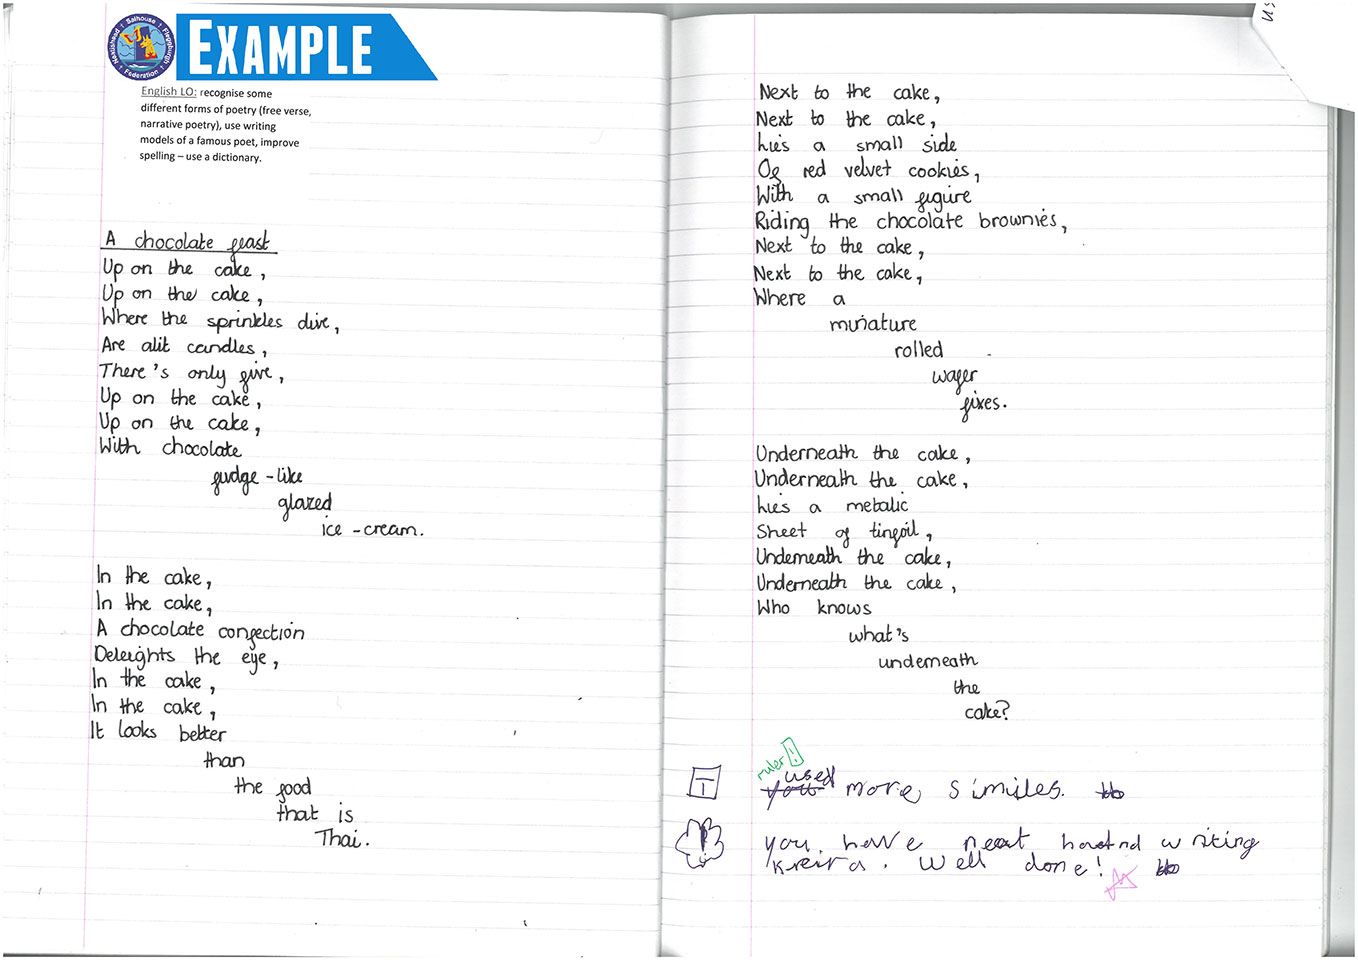 EXAMPLE
Neatishead † Salhouse † Fleggburgh † Federation
English LO: recognise some
different forms of poetry (free verse,
narrative poetry), use writing
models of a famous poet, improve
spelling – use a dictionary.
A chocolate feast
Up on the cake,
Up on the cake,
Where the sprinkles dive,
Are alit candles,
There's only five,
Up on the cake,
Up on the cake,
With chocolate
fudge-like
glazed
ice-cream.
In the cake,
In the cake,
A chocolate confection
Deleights the eye,
In the cake,
In the cake,
It looks better
than
the food
that is
Thai.
Next to the cake,
Next to the cake,
Lies a small side
Of red velvet cookies,
With a small figure
Riding the chocolate brownies,
Next to the cake,
Next to the cake,
Where a
miniature
rolled
wafer
fixes.
Underneath the cake,
Underneath the cake,
Lies a metalic
Sheet of tinfoil,
Underneath the cake,
Underneath the cake,
Who knows
what's
underneath
the
cake?
ruler
T
used more similes.
you have neat hand writing
Keira. Well done!